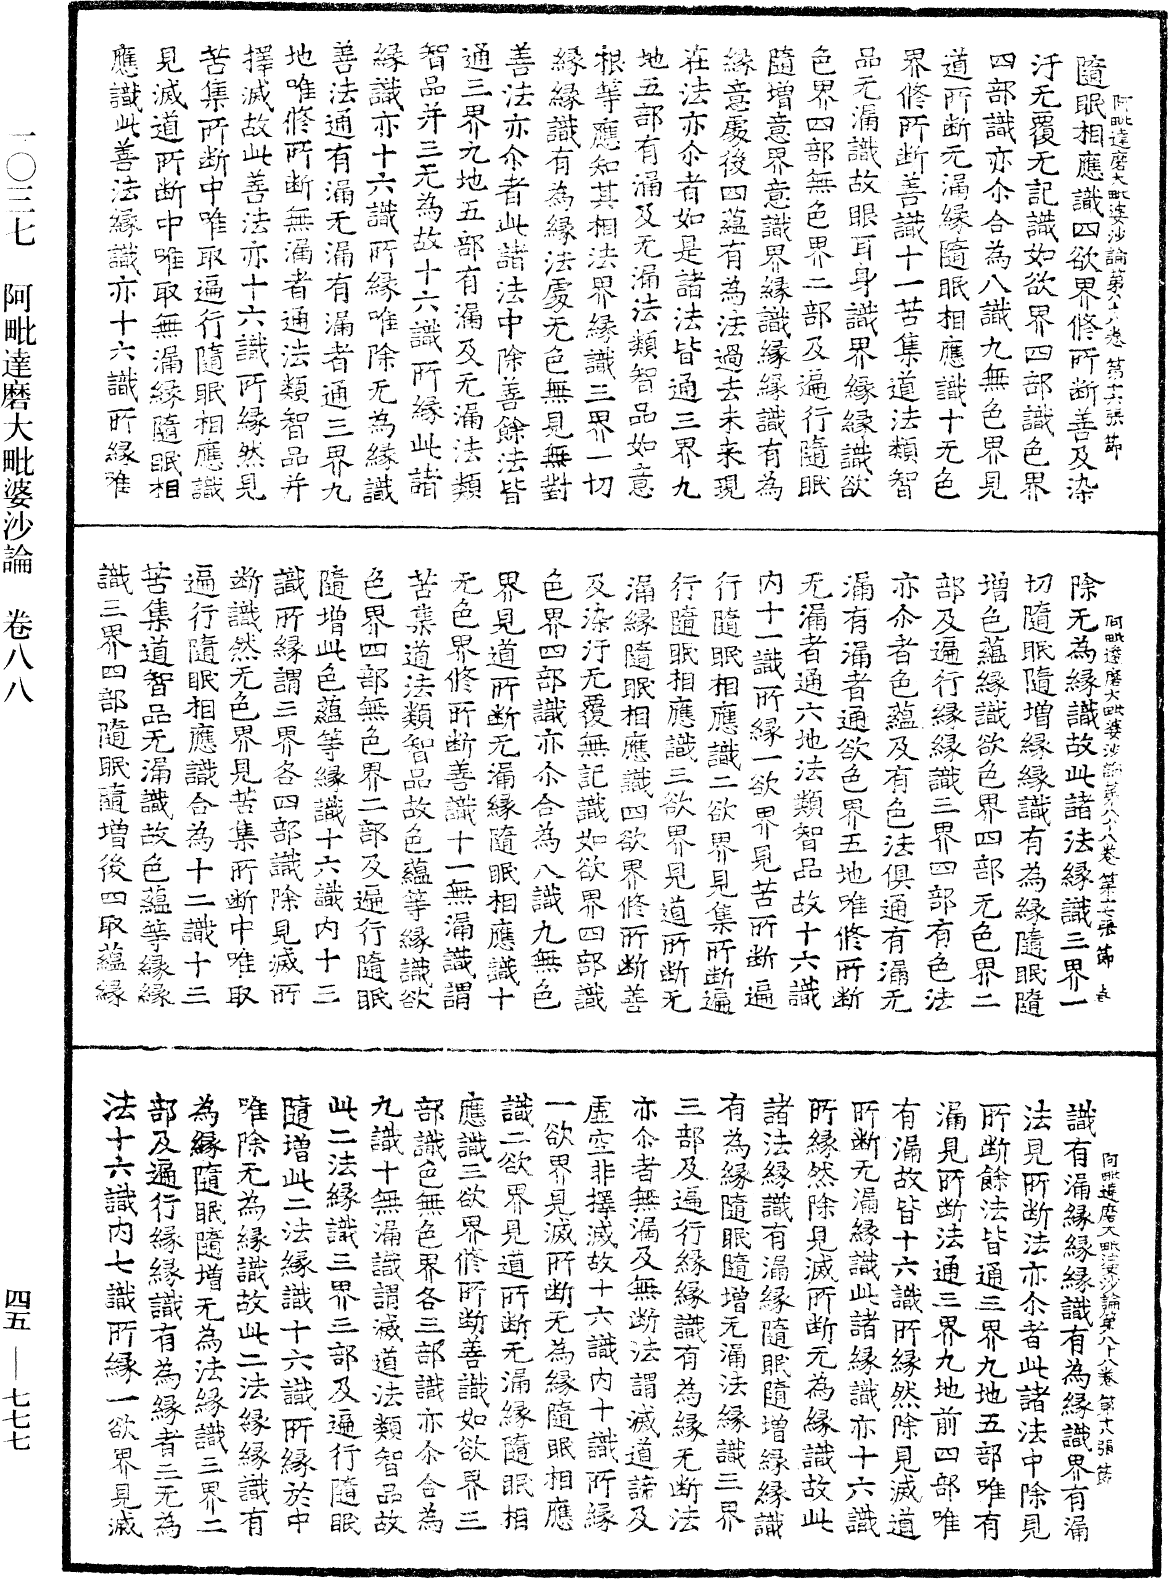 阿毗達磨大毗婆沙論第八十八卷 第十六張 節
隨眠相應識四欲界修所断善及染
汙无覆无記識如欲界四部識色界
四部識亦尒合為八識九無色界見
道所断无漏緣隨眠相應識十无色
界修所断善識十一苦集道法類智
品无漏識故眼耳身識界緣緣識欲
色界四部無色界二部及遍行隨眠
隨增意界意識界緣識緣緣識有為
緣意處後四蘊有為法過去未来現
在法亦尒者如是諸法皆通三界九
地五部有漏及无漏法類智品如意
根等應知其相法界緣識三界一切
緣緣識有為緣法處无色無見無對
善法亦尒者此諸法中除善餘法皆
通三界九地五部有漏及无漏法類
智品并三无為故十六識所緣此諸
緣識亦十六識所緣唯除无為緣識
善法通有漏无漏有漏者通三界九
地唯修所断無漏者通法類智品并
擇滅故此善法亦十六識所緣然見
苦集所断中唯取遍行隨眠相應識
見滅道所断中唯取無漏緣隨眠相
應識此善法緣識亦十六識所緣唯
阿毗達磨大毗婆沙論第八十八卷 第十七張 節
除无為緣識故此諸法緣識三界一
切隨眠隨增緣緣識有為緣隨眠隨
增色蘊緣識欲色界四部无色界二
部及遍行緣緣識三界四部有色法
亦尒者色蘊及有色法俱通有漏无
漏有漏者通欲色界五地唯修所断
无漏者通六地法類智品故十六識
內十一識所緣一欲界見苦所断遍
行隨眠相應識二欲界見集所断遍
行隨眠相應識三欲界見道所断无
漏緣隨眠相應識四欲界修所断善
及染汙无覆無記識如欲界四部識
色界四部識亦尒合為八識九無色
界見道所断无漏緣隨眠相應識十
无色界修所断善識十一無漏識謂
苦集道法類智品故色蘊等緣識欲
色界四部無色界二部及遍行隨眠
隨增此色蘊等緣識十六識內十三
識所緣謂三界各四部識除見滅所
断識然无色界見苦集所断中唯取
遍行隨眠相應識合為十二識十三
苦集道智品无漏識故色蘊等緣緣
識三界四部隨眠隨增後四取蘊緣
阿毗達磨大毗婆沙論第八十八卷 第十八張 節
識有漏緣緣識有為緣識界有漏
法見所断法亦尒者此諸法中除見
所断餘法皆通三界九地五部唯有
漏見所断法通三界九地前四部唯
有漏故皆十六識所緣然除見滅道
所断无漏緣識此諸緣識亦十六識
所緣然除見滅所断无為緣識故此
諸法緣識有漏緣隨眠隨增緣緣識
有為緣隨眠隨增无漏法緣識三界
三部及遍行緣緣識有為緣无断法
亦尒者無漏及無断法謂滅道諦及
虛空非擇滅故十六識內十識所緣
一欲界見滅所断无為緣隨眠相應
識二欲界見道所断无漏緣隨眠相
應識三欲界修所断善識如欲界三
部識色無色界各三部識亦尒合為
九識十無漏識謂滅道法類智品故
此二法緣識三界三部及遍行隨眠
隨增此二法緣識十六識所緣於中
唯除无為緣識故此二法緣緣識有
為緣隨眠隨增无為法緣識三界二
部及遍行緣緣識有為緣者三无為
法十六識內七識所緣一欲界見滅
一〇三七 阿毗達磨大毗婆沙論 卷八八
四五—七七七